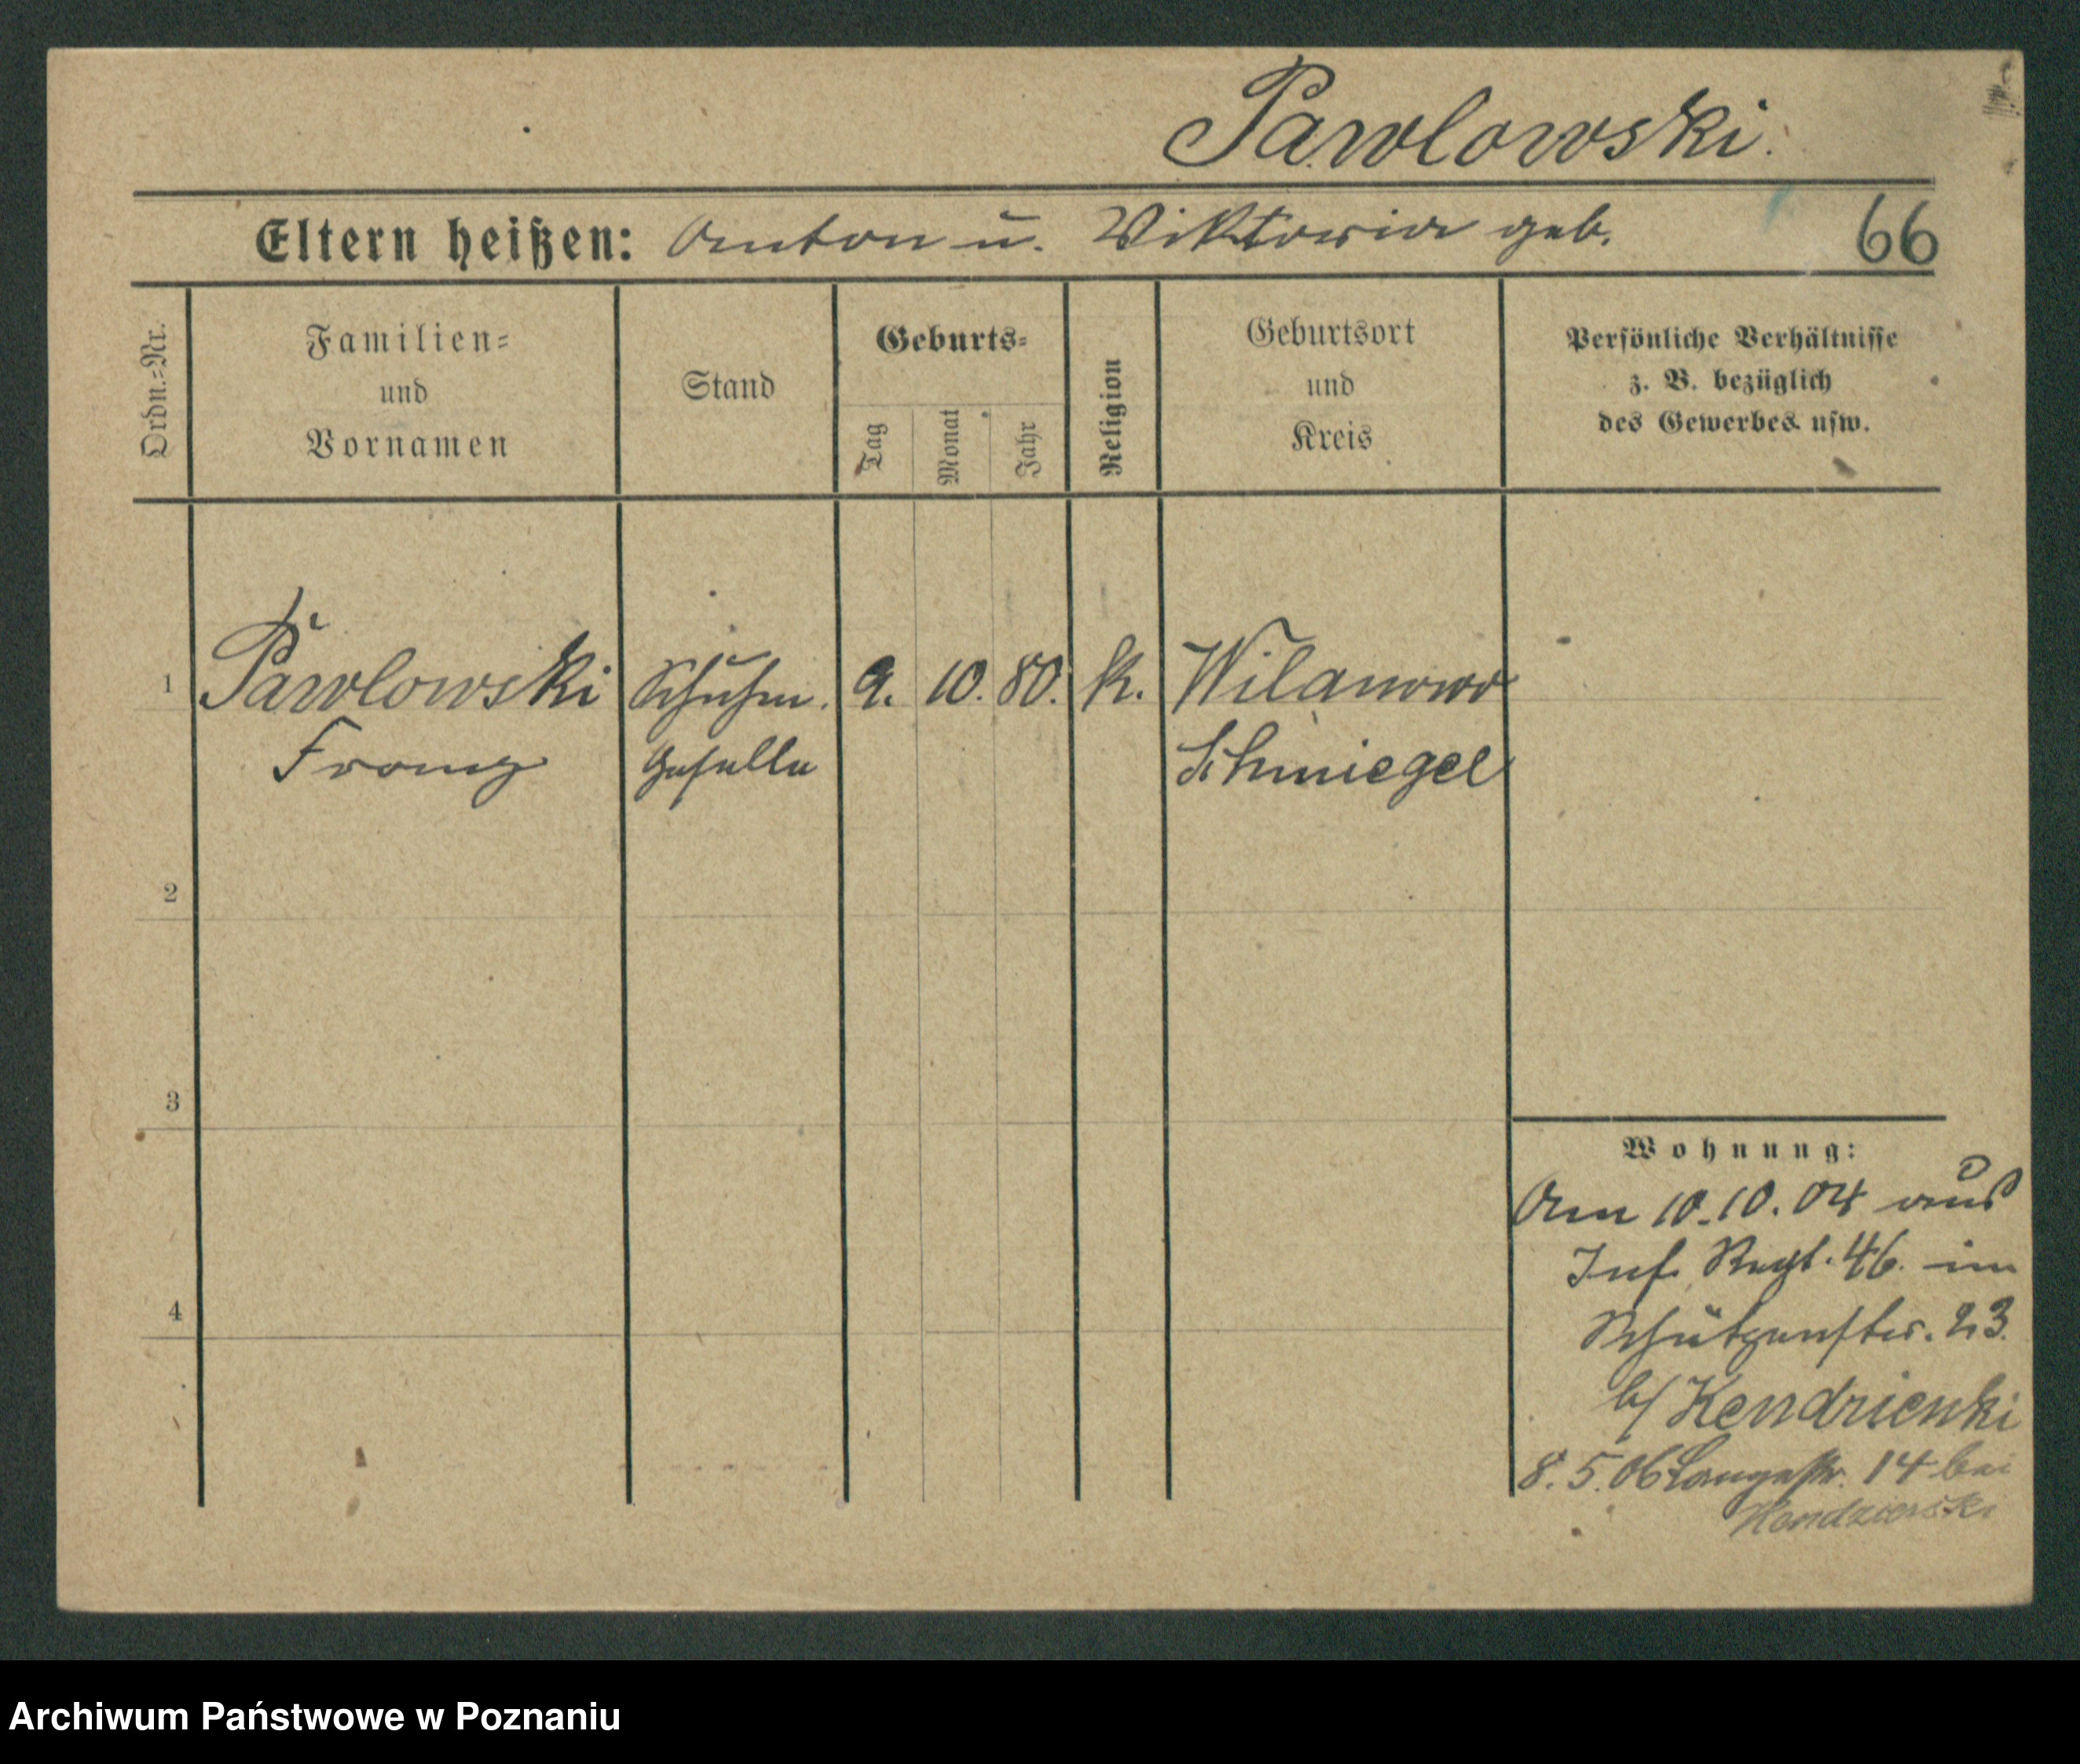 Pawlowski.
Eltern heißen: Anton u. Viktoria geb. 66
Ordn.=Nr.
Familien=
und
Vornamen
Stand
Geburts=
Tag
Monat
Jahr
Religion
Geburtsort
und
Kreis
Persönliche Verhältnisse
z. B. bezüglich
des Gewerbes usw.
1 Pawlowski Schuhm. 9. 10. 80. K. Wilanowo
Franz Geselle Schmiegel
2
3
4
Wohnung:
Am 10.10.04 aus
Inf. Regt. 46. im
Schützenstr. 23.
b/ Kendrienki
8.5.06 Langestr. 14 bei
Archiwum Państwowe w Poznaniu